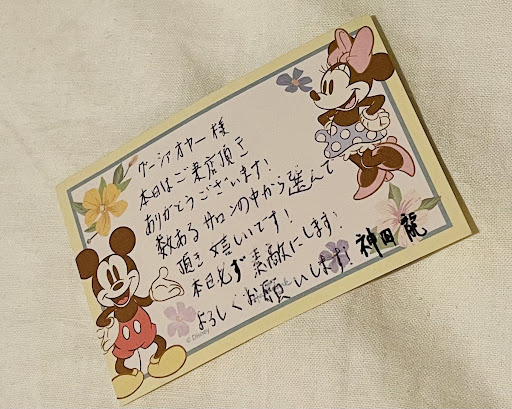 グーシアオヤー様
本日はご来店頂き
ありがとうございます!
数あるサロンの中から選んで
頂き嬉しいです!
本日必ず素敵にします!
よろしくお願いします! 神田 龍
© Disney